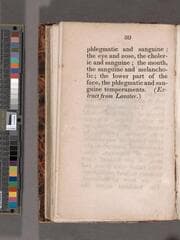 30
phlegmatic and sanguine ;
the eye and nose, the choler-
ic and sanguine ; the mouth,
the sanguine and melancho-
lic; the lower part of the
face, the phlegmatic and san-
guine temperaments. (Ex-
tract from Lavater.)